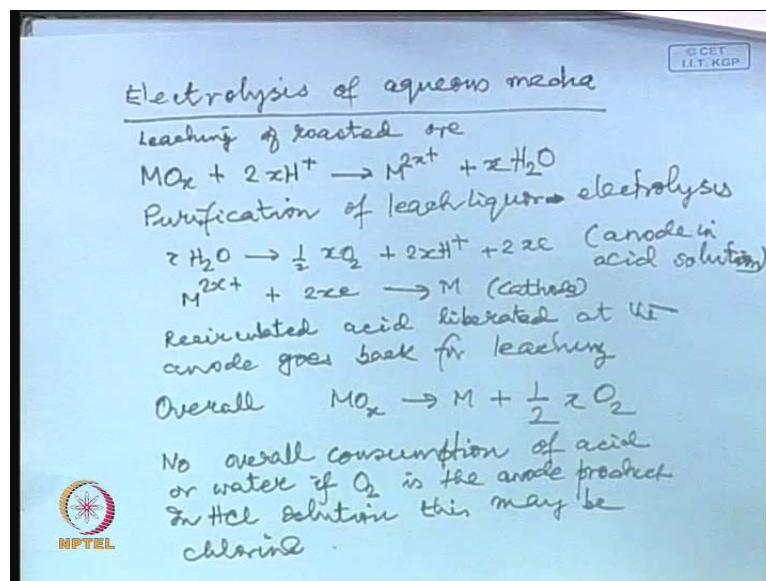 © CET
I.I.T. KGP
Electrolysis of aqueous media
Leaching of roasted ore
MOₓ + 2xH⁺ → M²ˣ⁺ + xH₂O
Purification of leach liquor → electrolysis
xH₂O → ½ xO₂ + 2xH⁺ + 2xe (anode in
acid solution)
M²ˣ⁺ + 2xe → M (Cathode)
Recirculated acid liberated at the
anode goes back for leaching
Overall MOₓ → M + ½ x O₂
No overall consumption of acid
or water if O₂ is the anode product
In HCl solution this may be
chlorine.
NPTEL